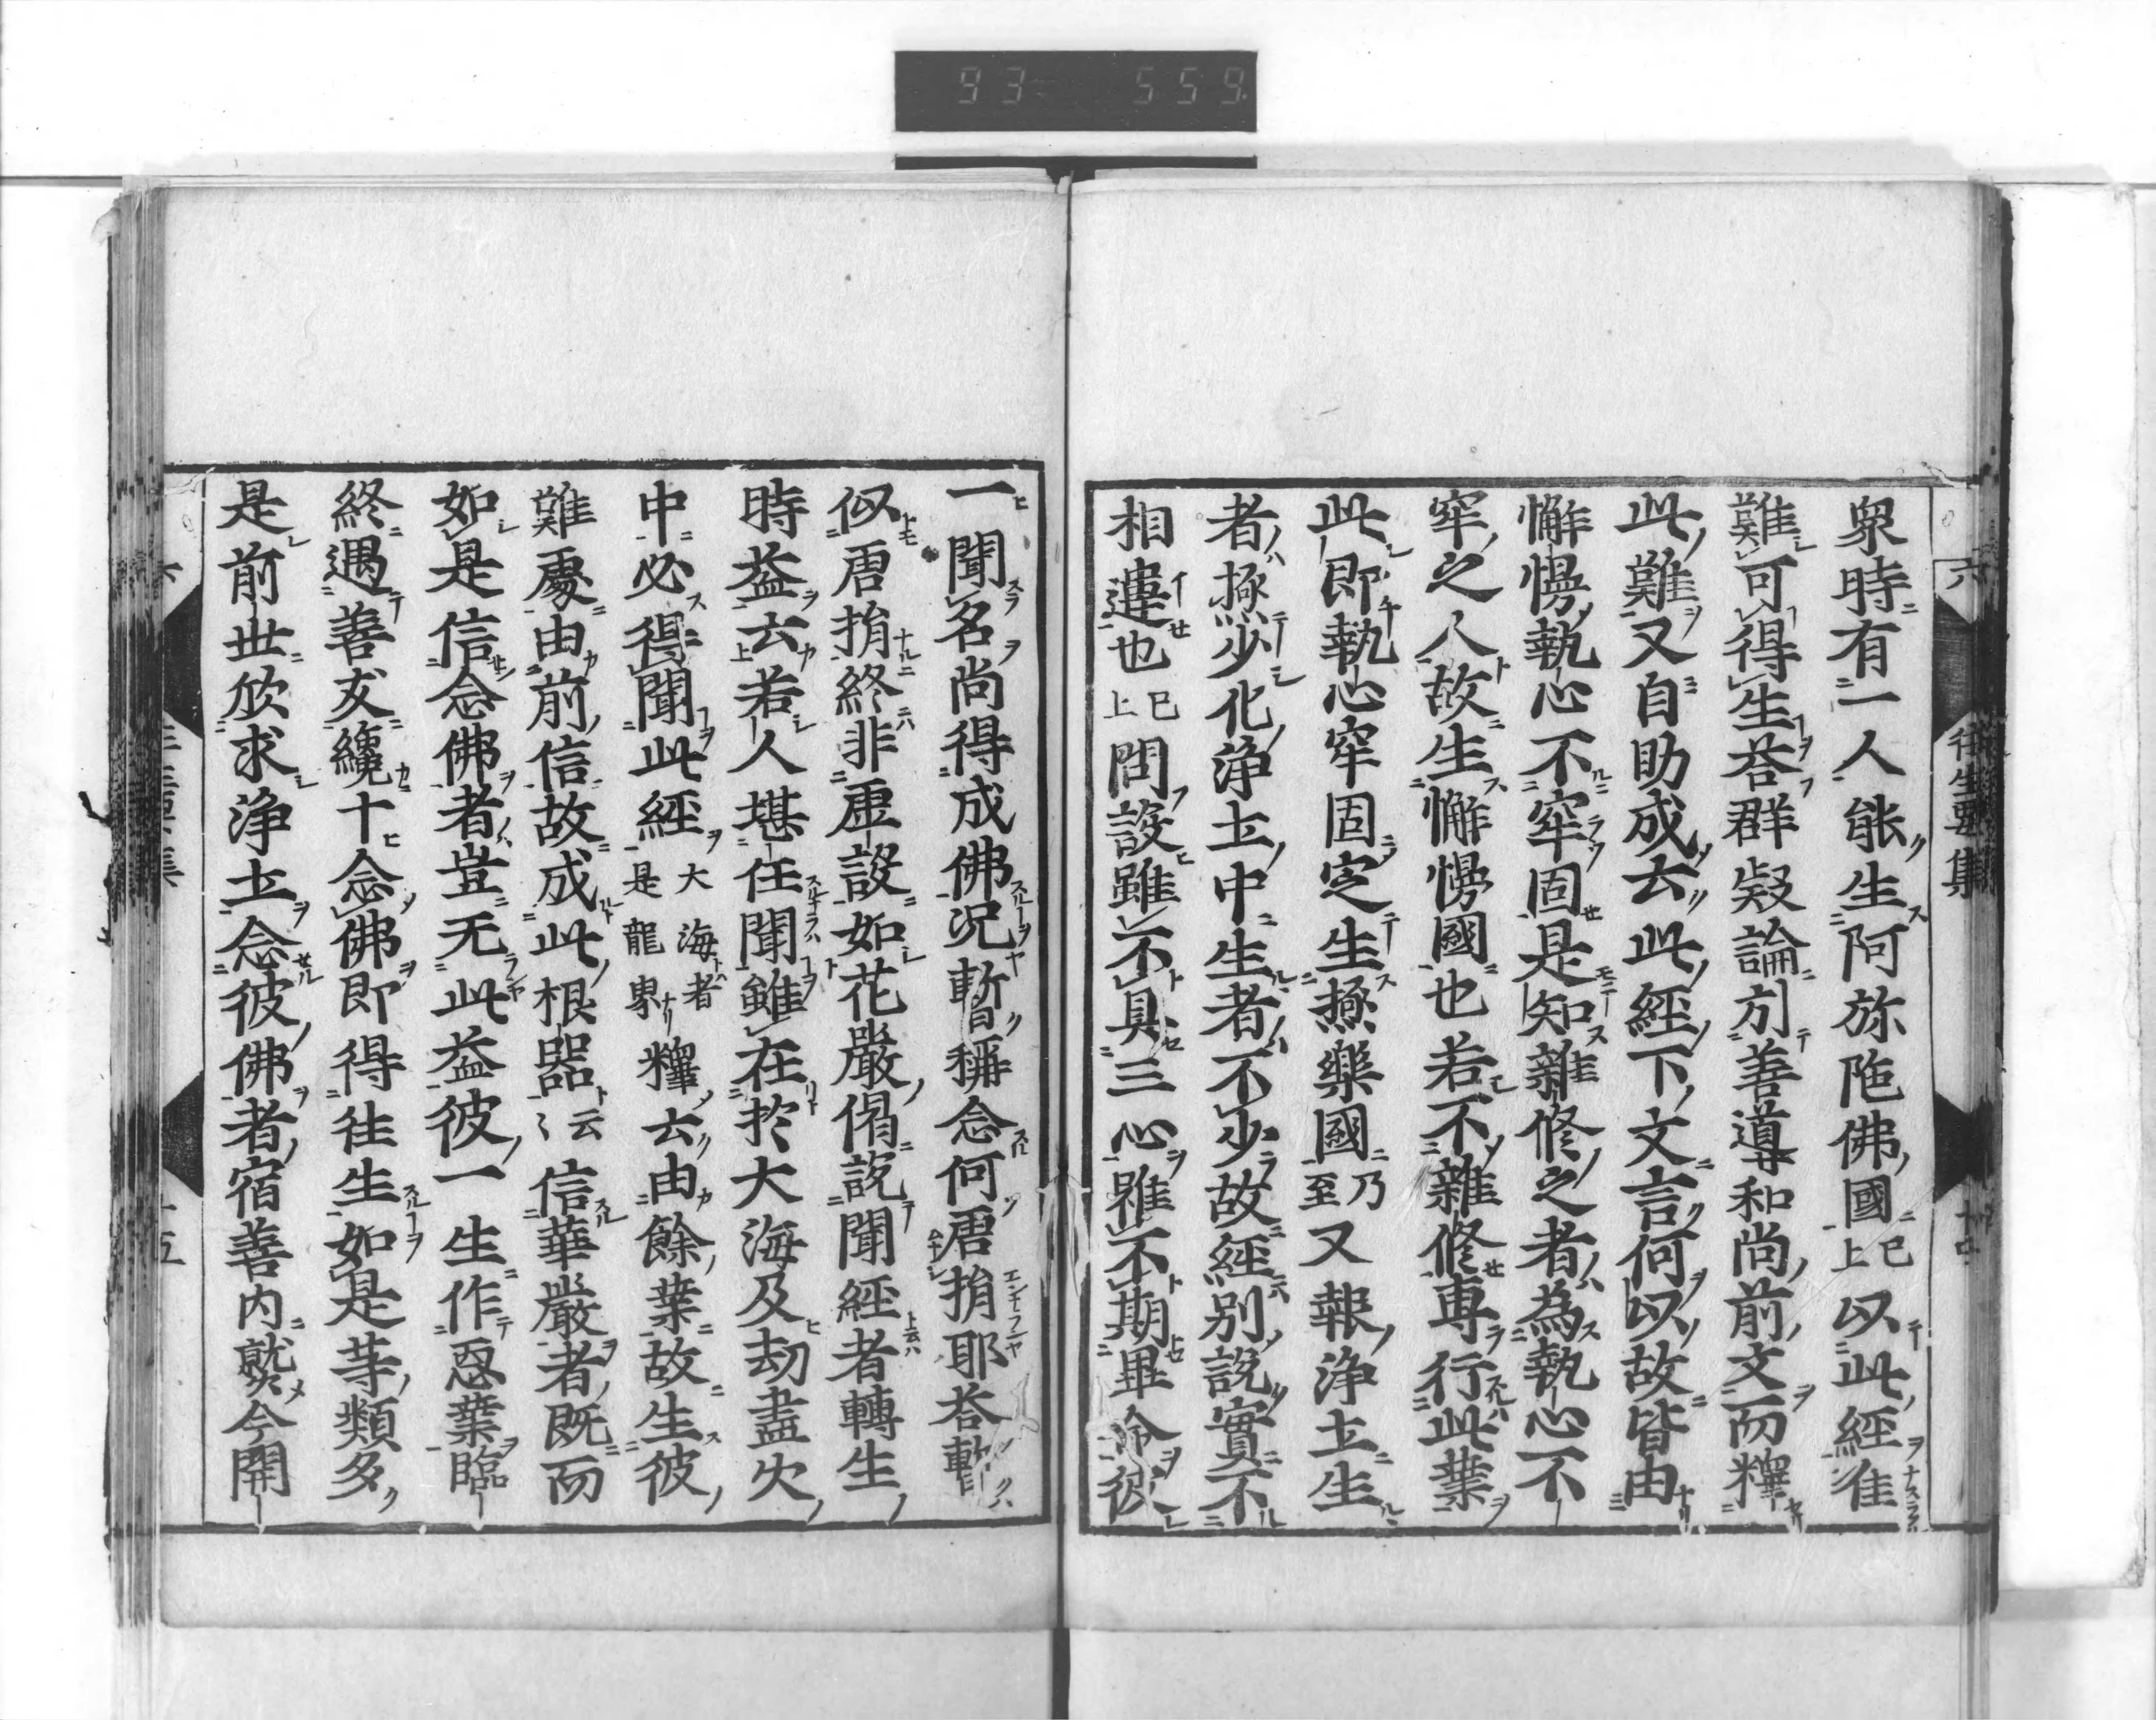 93 559
六 往生要集
衆時有一人能生阿弥陁佛國已上以此經准
難可得生荅群疑論引善導和尚前文而釋
此難又自助成云此經下文言何以故皆由
懈慢執心不牢固是知雜修之者為執心不
牢之人故生懈慢國也若不雜修專行此業
此即執心牢固定生極樂國乃至又報淨土生
者極少化淨土中生者不少故經別説實不
相違也已上問設雖不具三心雖不期畢命彼
一聞名尚得成佛况暫稱念何唐捐耶荅暫
似唐捐終非虛設如花嚴偈説聞經者轉生
時益云若人堪任聞雖在於大海及劫盡火
中必得聞此經大海者是龍界釋云由餘業故生彼
難處由前信故成此根器云〻信華嚴者既而
如是信念佛者豈无此益彼一生作惡業臨
終遇善友纔十念佛即得徃生如是等類多
是前世欣求淨土念彼佛者宿善内熟今開